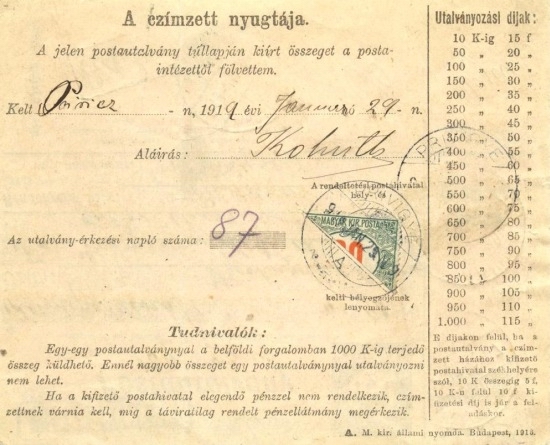 A czímzett nyugtája.
A jelen postautalvány túllapján kiírt összeget a posta-
intézettől fölvettem.
Kelt - n, 1919 évi Januar hó 29 - n.
Aláírás: Kohuth
A rendeltetési postahivatal
hely- és
MAGYAR KIR. POSTA
Az utalvány-érkezési napló száma: 87
kelti bélyegzőjének
lenyomata.
Tudnivalók:
Egy-egy postautalványnyal a belföldi forgalomban 1000 K-ig terjedő
összeg küldhető. Ennél nagyobb összeget egy postautalványnyal utalványozni
nem lehet.
Ha a kifizető postahivatal elegendő pénzzel nem rendelkezik, czím-
zettnek várnia kell, míg a táviratilag rendelt pénzellátmány megérkezik.
Utalványozási díjak:
10 K-ig 15 f
50 „ 20 „
100 „ 25 „
150 „ 30 „
200 „ 35 „
250 „ 40 „
300 „ 45 „
350 „ 50 „
400 „ 55 „
450 „ 60 „
500 „ 65 „
550 „ 70 „
600 „ 75 „
650 „ 80 „
700 „ 85 „
750 „ 90 „
800 „ 95 „
850 „ 100 „
900 „ 105 „
950 „ 110 „
1.000 „ 115 „
E díjakon felül, ha a
postautalvány a czím-
zett házához kifizető
postahivatal székhelyére
szól, 10 K összegig 5 f,
10 K-n felül 10 f ki-
fizetési díj is jár a fel-
adáskor.
A. M. kir. állami nyomda. Budapest, 1915.